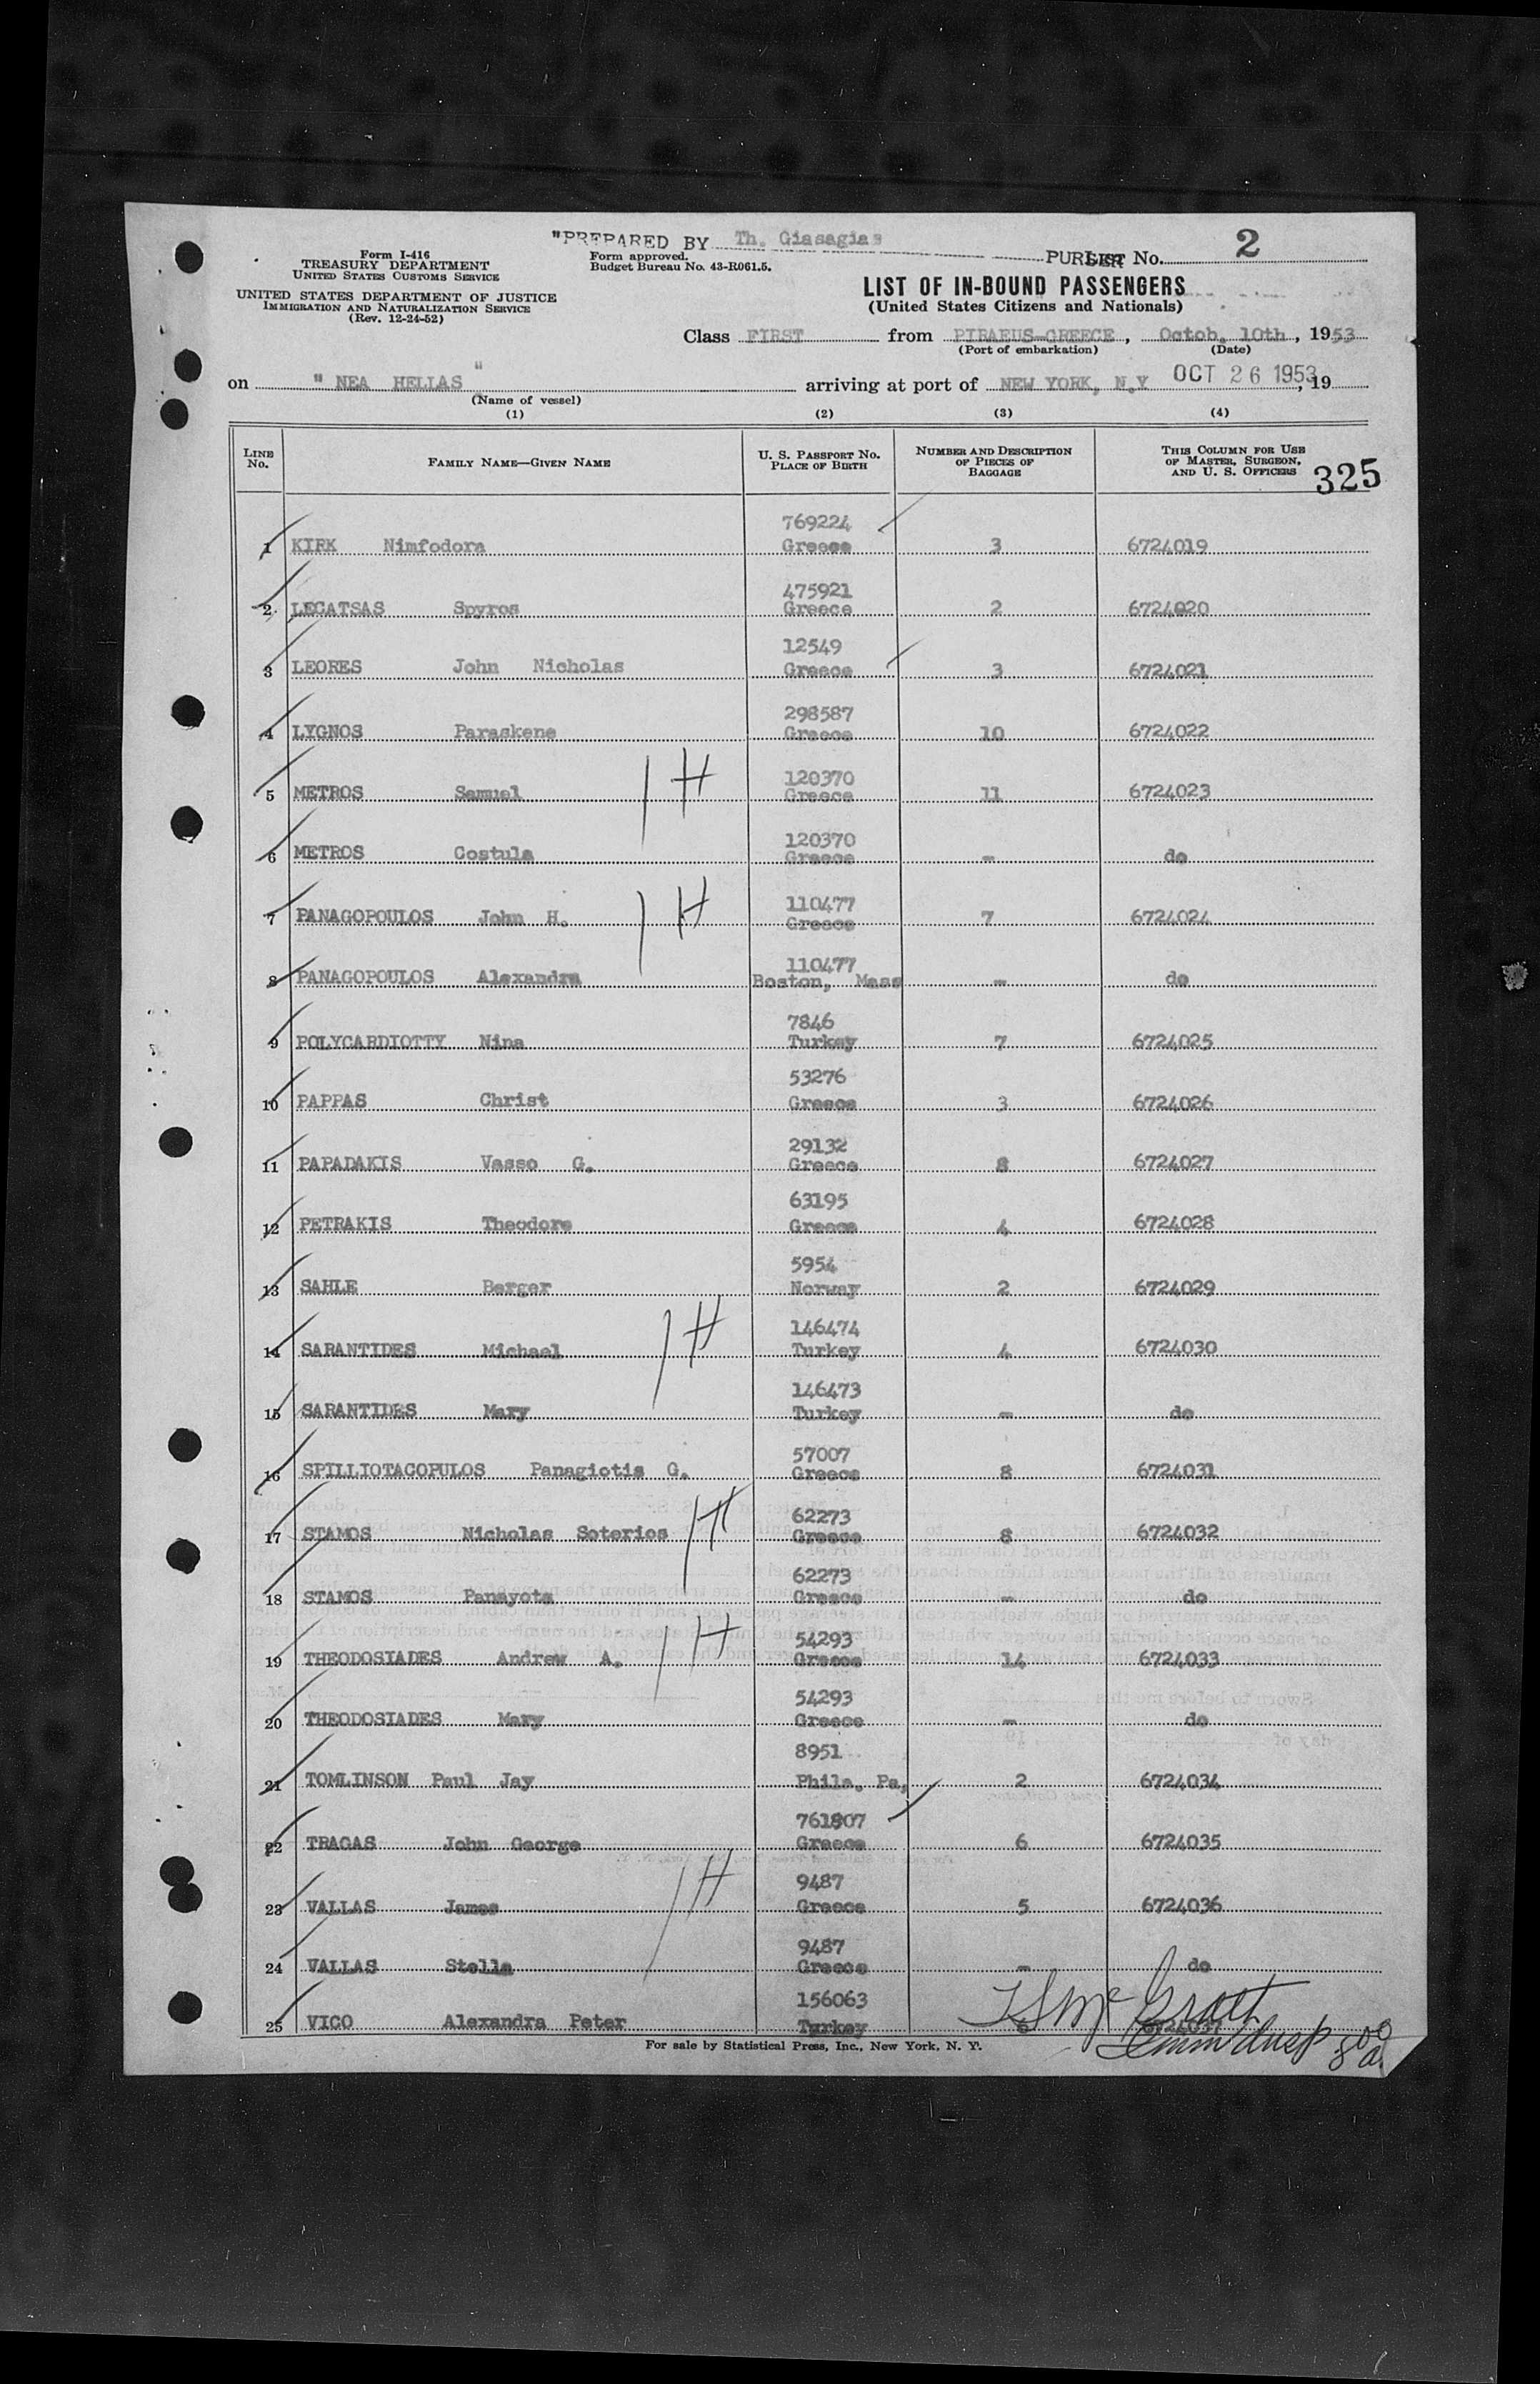 "PREPARED BY Th. Giasagias PURSER
Form I-416
TREASURY DEPARTMENT
UNITED STATES CUSTOMS SERVICE
UNITED STATES DEPARTMENT OF JUSTICE
IMMIGRATION AND NATURALIZATION SERVICE
(Rev. 12-24-52)
Form approved.
Budget Bureau No. 43-R061.5.
List No. 2
LIST OF IN-BOUND PASSENGERS
(United States Citizens and Nationals)
Class FIRST from PIRAEUS-GREECE, Octob. 10th, 1953
(Port of embarkation) (Date)
on " NEA HELLAS " arriving at port of NEW YORK, N.Y OCT 26 1953, 19
(Name of vessel)
(1) (2) (3) (4)
LINE No. FAMILY NAME—GIVEN NAME U. S. PASSPORT NO. PLACE OF BIRTH NUMBER AND DESCRIPTION OF PIECES OF BAGGAGE THIS COLUMN FOR USE OF MASTER, SURGEON, AND U. S. OFFICERS 325
769224
1 KIRK Nimfodora Greece 3 6724019
475921
2 LECATSAS Spyros Greece 2 6724020
12549
3 LEORES John Nicholas Greece 3 6724021
298587
4 LYGNOS Paraskene Greece 10 6724022
120370
5 METROS Samuel 1H Greece 11 6724023
120370
6 METROS Costula Greece - do
110477
7 PANAGOPOULOS John H. 1H Greece 7 6724024
110477
8 PANAGOPOULOS Alexandra Boston, Mass - do
7846
9 POLYCARDIOTTY Nina Turkey 7 6724025
53276
10 PAPPAS Christ Greece 3 6724026
29132
11 PAPADAKIS Vasso G. Greece 8 6724027
63195
12 PETRAKIS Theodore Greece 4 6724028
5954
13 SAHLE Berger Norway 2 6724029
146474
14 SARANTIDES Michael 1H Turkey 4 6724030
146473
15 SARANTIDES Mary Turkey - do
57007
16 SPILLIOTACOPULOS Panagiotis G. Greece 8 6724031
62273
17 STAMOS Nicholas Soterios 1H Greece 8 6724032
62273
18 STAMOS Panayota Greece - do
54293
19 THEODOSIADES Andrew A. 1H Greece 14 6724033
54293
20 THEODOSIADES Mary Greece - do
8951
21 TOMLINSON Paul Jay Phila. Pa, 2 6724034
761807
22 TRAGAS John George Greece 6 6724035
9487
23 VALLAS James 1H Greece 5 6724036
9487
24 VALLAS Stella Greece - do
156063
25 VICO Alexandra Peter Turkey 6 6724037
For sale by Statistical Press, Inc., New York, N. Y.